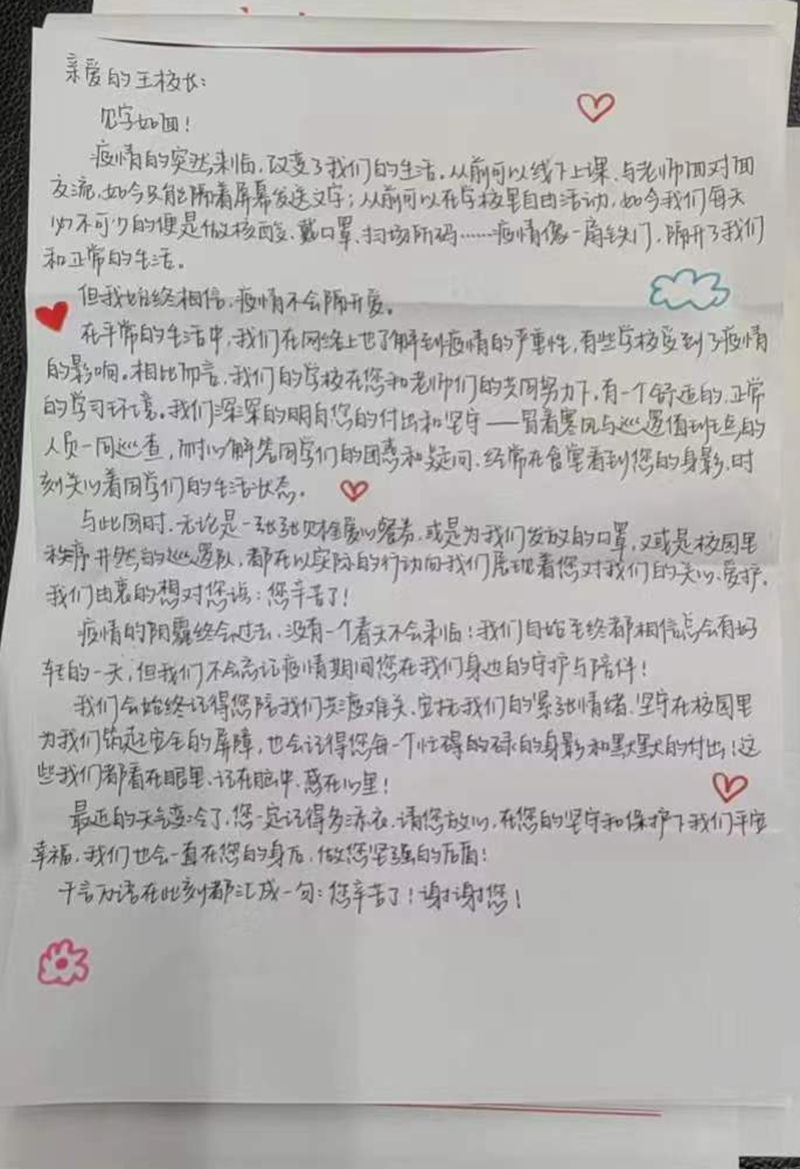 亲爱的王校长:
见字如面!
疫情的突然来临,改变了我们的生活。从前可以线下上课、与老师面对面
交流,如今只能隔着屏幕发送文字;从前可以在学校里自由活动,如今我们每天
必不可少的便是做核酸、戴口罩、扫场所码……疫情像一扇铁门,隔开了我们
和正常的生活。
但我始终相信,疫情不会隔开爱。
在平常的生活中,我们在网络上也了解到疫情的严重性,有些学校受到了疫情
的影响。相比而言,我们的学校在您和老师们的共同努力下,有一个舒适的、正常
的学习环境。我们深深的明白您的付出和坚守——冒着寒风与巡逻值到点的
人员一同巡查,耐心解答同学们的困惑和疑问、经常在食堂看到您的身影,时
刻关心着同学们的生活状态。
与此同时,无论是一张张贝桂爱心餐券,或是为我们发放的口罩,又或是校园里
秩序井然的巡逻队,都在以实际的行动向我们展现着您对我们的关心、爱护。
我们由衷的想对您说:您辛苦了!
疫情的阴霾终会过去,没有一个春天不会来临!我们自始至终都相信总会有好
转的一天,但我们不会忘记疫情期间您在我们身边的守护与陪伴!
我们会始终记得您陪我们共渡难关、安抚我们的紧张情绪、坚守在校园里
为我们筑起安全的屏障,也会记得您每一个忙碌的碌的身影和默默的付出!这
些我们都看在眼里、记在脑中、感在心里!
最近的天气变冷了,您一定记得多添衣、请您放心,在您的坚守和保护下我们平安
幸福,我们也会一直在您的身后,做您坚强的后盾!
千言万语在此刻都汇成一句:您辛苦了!谢谢您!